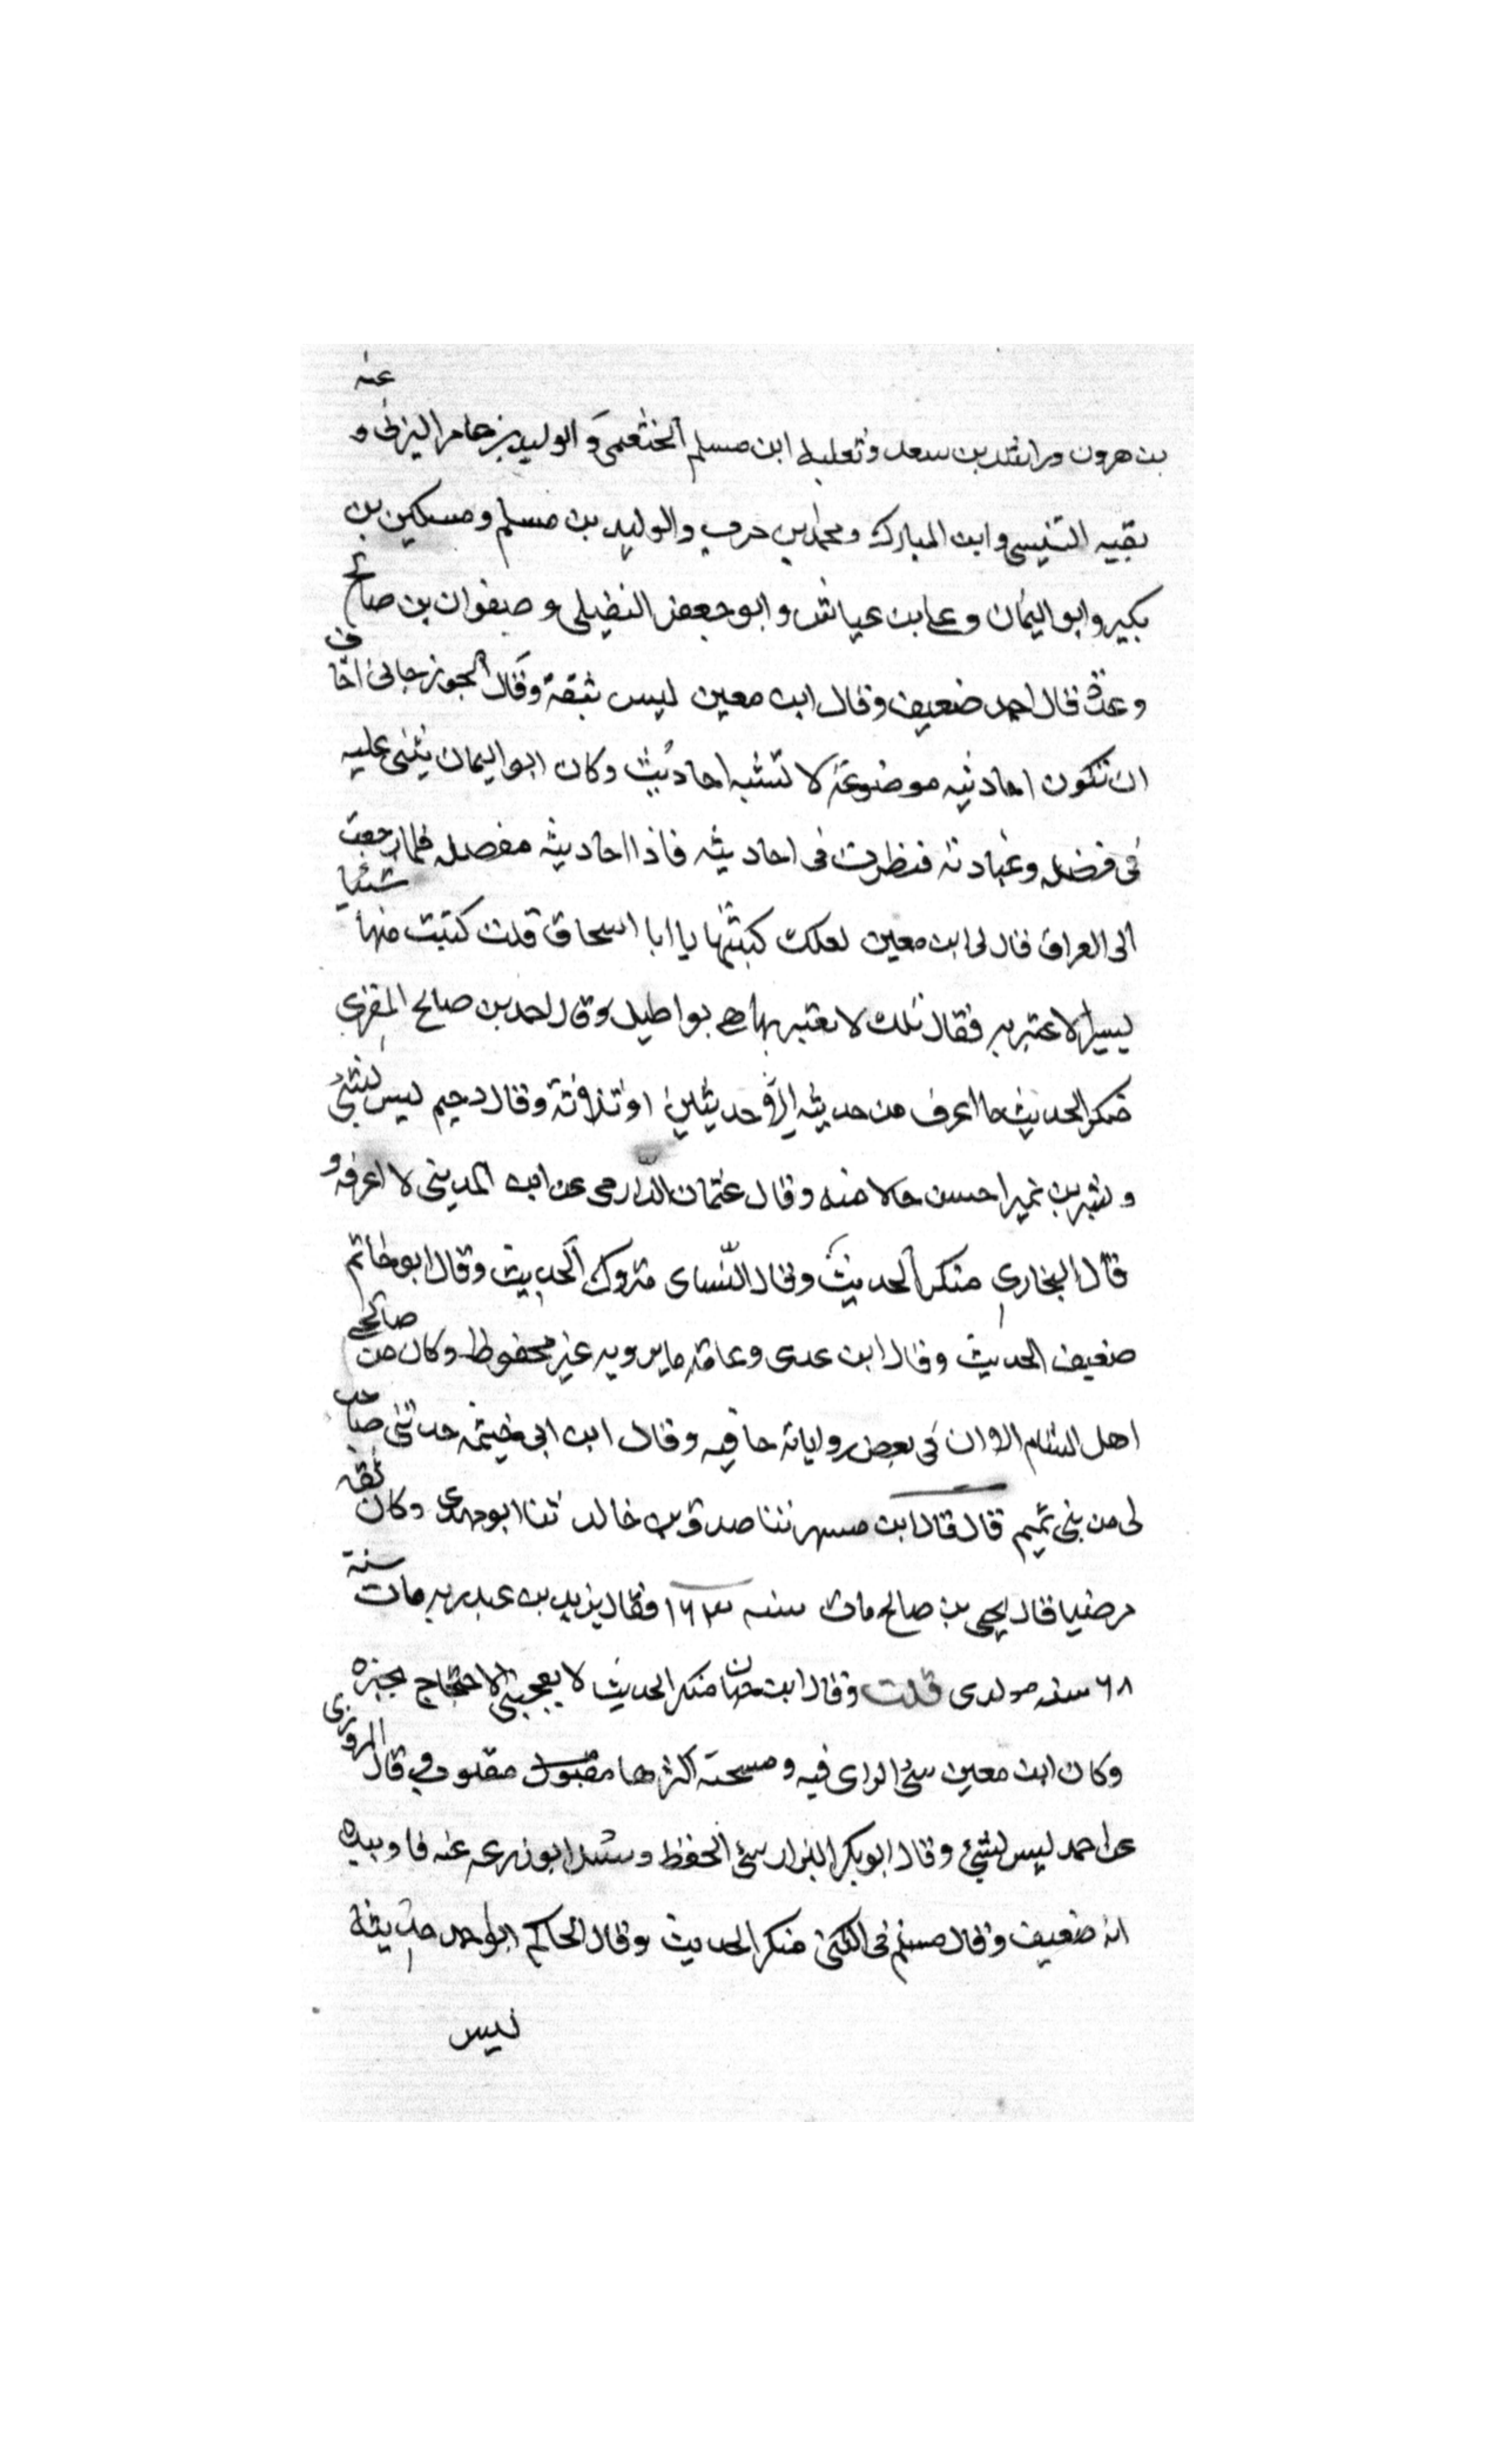 بن هرون وراشد بن سعد وثعلبة ابن مسلم الخثعمى و الوليد بن عامر اليزنى و عنه
بقيه التنيسى وابن المبارك ومحمد بن حرب والوليد بن مسلم ومسكين بن
بكير وابو اليمان وعلى بن عياش وابو جعفر النفيلى وصفوان بن صالح
وعدة قال احمد ضعيف وقال ابن معين ليس بثقة وقال الجوزجانى اخاف
ان تكون احاديثه موضوعة لا تشبه احاديث وكان ابو اليمان يثنى عليه
فى فضله وعبادته فنظرت فى احاديثه فاذا احاديثه مفصله فلما رجعت
الى العراق قال لى ابن معين لعلك كتبتها يا ابا اسحاق قلت كتبت منها شيئا
يسيرا لاعتبر به فقال تلك لا يعتبر بها هى بواطيل وقال احمد بن صالح المقرى
منكر الحديث ما اعرف من حديثه الا حديثين او ثلاثة وقال دحيم ليس بشئ
وبشر بن نمير احسن حالا منه وقال عثمان الدارمى عن ابن المدينى لا اعرفه و
قال البخارى منكر الحديث وقال النساى متروك الحديث وقال ابو حاتم
ضعيف الحديث وقال ابن عدى وعامة ما يرويه غير محفوظ وكان من صالحى
اهل الشام الا ان فى بعض رواياته ما فيه وقال ابن ابى خيثمه حدثنى صاحب
لى من بنى تميم قال قال ابن مسهر ثنا صدقه بن خالد ثنا ابو مهدى وكان ثقه
مرضيا قال يحيى بن صالح مات سنه ١٦٣ فقال يزيد بن عبد ربه مات سنة
٦٨ سنه مولدى قلت وقال ابن حبان منكر الحديث لا يعجبنى الاحتجاج بخبره
وكان ابن معين سئ الراى فيه و اكثرها مقبول مقلو قال المروزى
عن احمد ليس بشئ وقال ابو بكر البزار سئ الحفظ وسئل ابو زرعه عنه فاوبيده
انه ضعيف وقال مسلم فى الكنى منكر الحديث وقال الحاكم ابو احمد حديثه
ليس